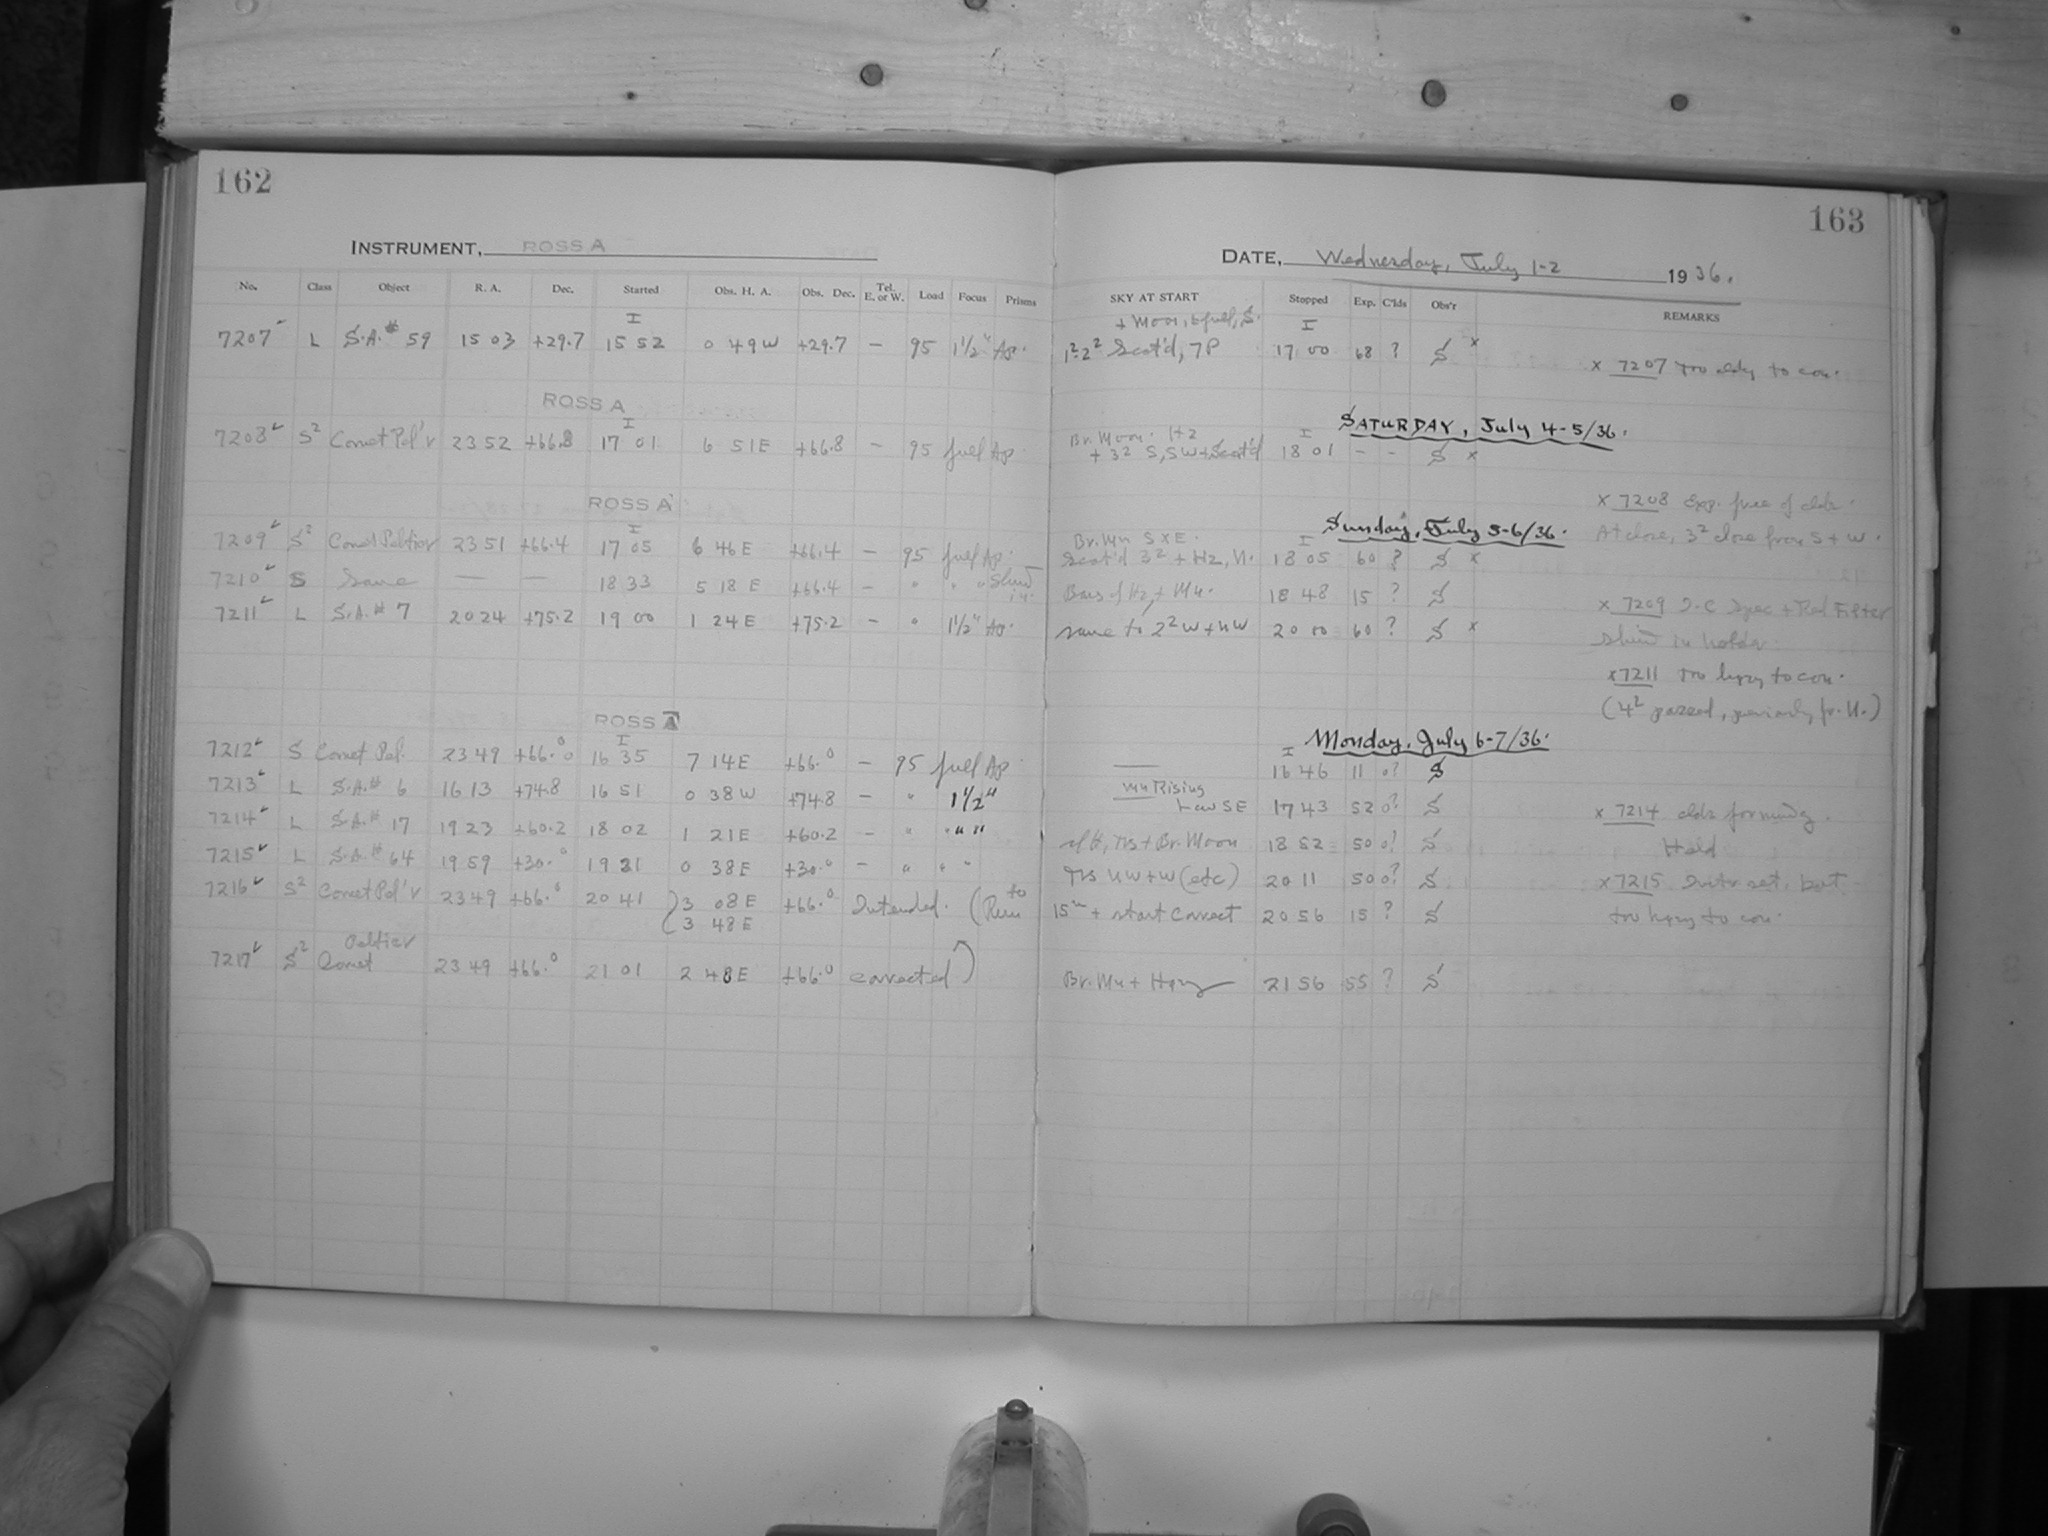 162
163
INSTRUMENT, ROSS A
DATE, Wednesday, July 1-2 1936.
No. Class Object R. A. Dec. Started Obs. H. A. Obs. Dec. Tel. E. or W. Load Focus Prisms SKY AT START Stopped Exp. C'lds Obs'r REMARKS
I + Moon, I
7207 L S.A.# 59 15 03 +29.7 15 52 0 49 W +29.7 — 95 1 1/2" Ap. Scat'd, 7P 17 00 68 ? S x
x 7207 Too cldy to con.
ROSS A
SATURDAY, July 4-5/36.
I Br. Moon. Hz I
7208 S2 Comet Pel'r 23 52 +66.8 17 01 6 51 E +66.8 — 95 full Ap. + 3² S, SW + Scat'd 18 01 - - S x
x 7208 Exp. free of clds.
At close, 3² close from S + W.
ROSS A
Sunday, July 5-6/36.
I Br. Mn S x E. I
7209 S2 Comet Peltier 23 51 +66.4 17 05 6 46 E +66.4 — 95 full Ap. Scat'd 3² + Hz, N. 18 05 60 ? S x
7210 S Same — — 18 33 5 18 E +66.4 — " " " Bars of Hz + Mn. 18 48 15 ? S
x 7209 Spec + Red Filter
7211 L S.A.# 7 20 24 +75.2 19 00 1 24 E +75.2 — " 1 1/2" Ap. same to 2² W + NW 20 00 60 ? S x
in holder.
x 7211 Too hazy to con.
(4² passed, fr. N.)
ROSS A
Monday, July 6-7/36.
I I
7212 S Comet Pel. 23 49 +66.0 16 35 7 14 E +66.0 — 95 full Ap. — 16 46 11 0? S
7213 L S.A.# 6 16 13 +74.8 16 51 0 38 W +74.8 — " 1 1/2" Mn Rising Low SE 17 43 52 0? S
7214 L S.A.# 17 19 23 +60.2 18 02 1 21 E +60.2 — " " " + Br. Moon 18 52 50 0? S
x 7214 clds forming.
Held
7215 L S.A.# 64 19 59 +30.0 19 21 0 38 E +30.0 — " " " NW + W (etc) 20 11 50 0? S
x 7215 but
too hazy to con.
7216 S2 Comet Pel'r 23 49 +66.0 20 41 3 08 E +66.0 Intended. (Run to 15m + start Correct 20 56 15 ? S
3 48 E
7217 S2 Peltier Comet 23 49 +66.0 21 01 2 48 E +66.0 corrected) Br. Mn + Hazy 21 56 55 ? S